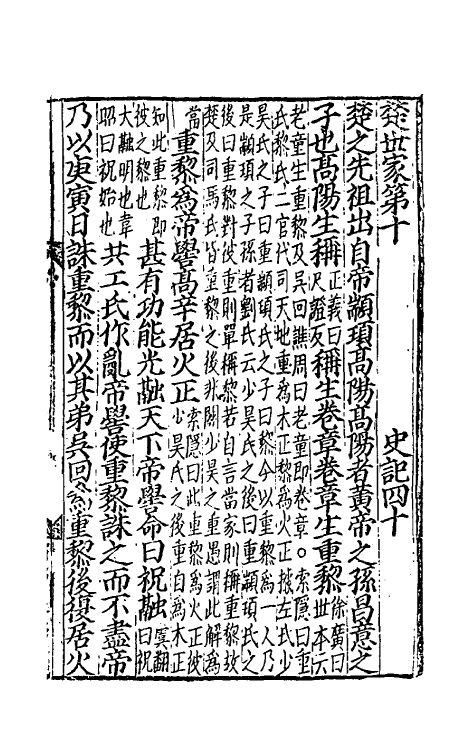 楚世家第十　史記四十
楚之先祖出自帝顓頊高陽高陽者黃帝之孫昌意之
子也高陽生稱正義曰尺證反稱生卷章卷章生重黎徐廣曰世本云
老童生重黎及吳回譙周曰老童即卷章○索隱曰重
氏黎氏二官代司天地重爲木正黎爲火正據左氏少
昊氏之子曰重顓頊氏之子曰黎今以重黎爲一人乃
是顓頊之子孫者劉氏云少昊氏之後曰重顓頊氏之
後曰重黎對彼重則單稱黎若自言當家則稱重黎故
楚及司馬氏皆重黎之後非關少昊之重愚謂此解爲
當重黎爲帝嚳高辛居火正索隱曰此重黎爲火正彼少昊氏之後重自爲木正
知此重黎即彼之黎也甚有功能光融天下帝嚳命曰祝融虞翻曰祝
大融明也韋昭曰祝始也共工氏作亂帝嚳使重黎誅之而不盡帝
乃以庚寅日誅重黎而以其弟吳回爲重黎後復居火